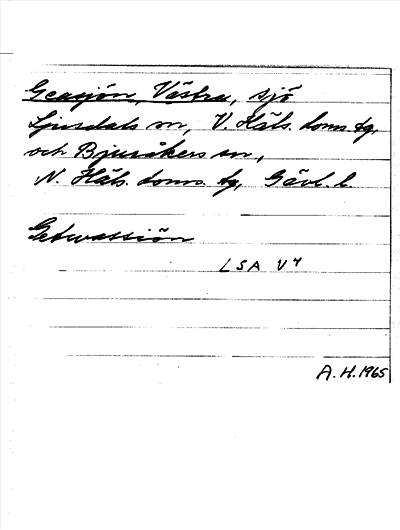 Geasjön, Västra, sjö
Ljusdals sn, V. Häls. doms. tg.
och Bjuråkers sn,
N. Häls. doms. tg, Gävl. l.
Getwassiön
LSA V 4
A.H. 1965